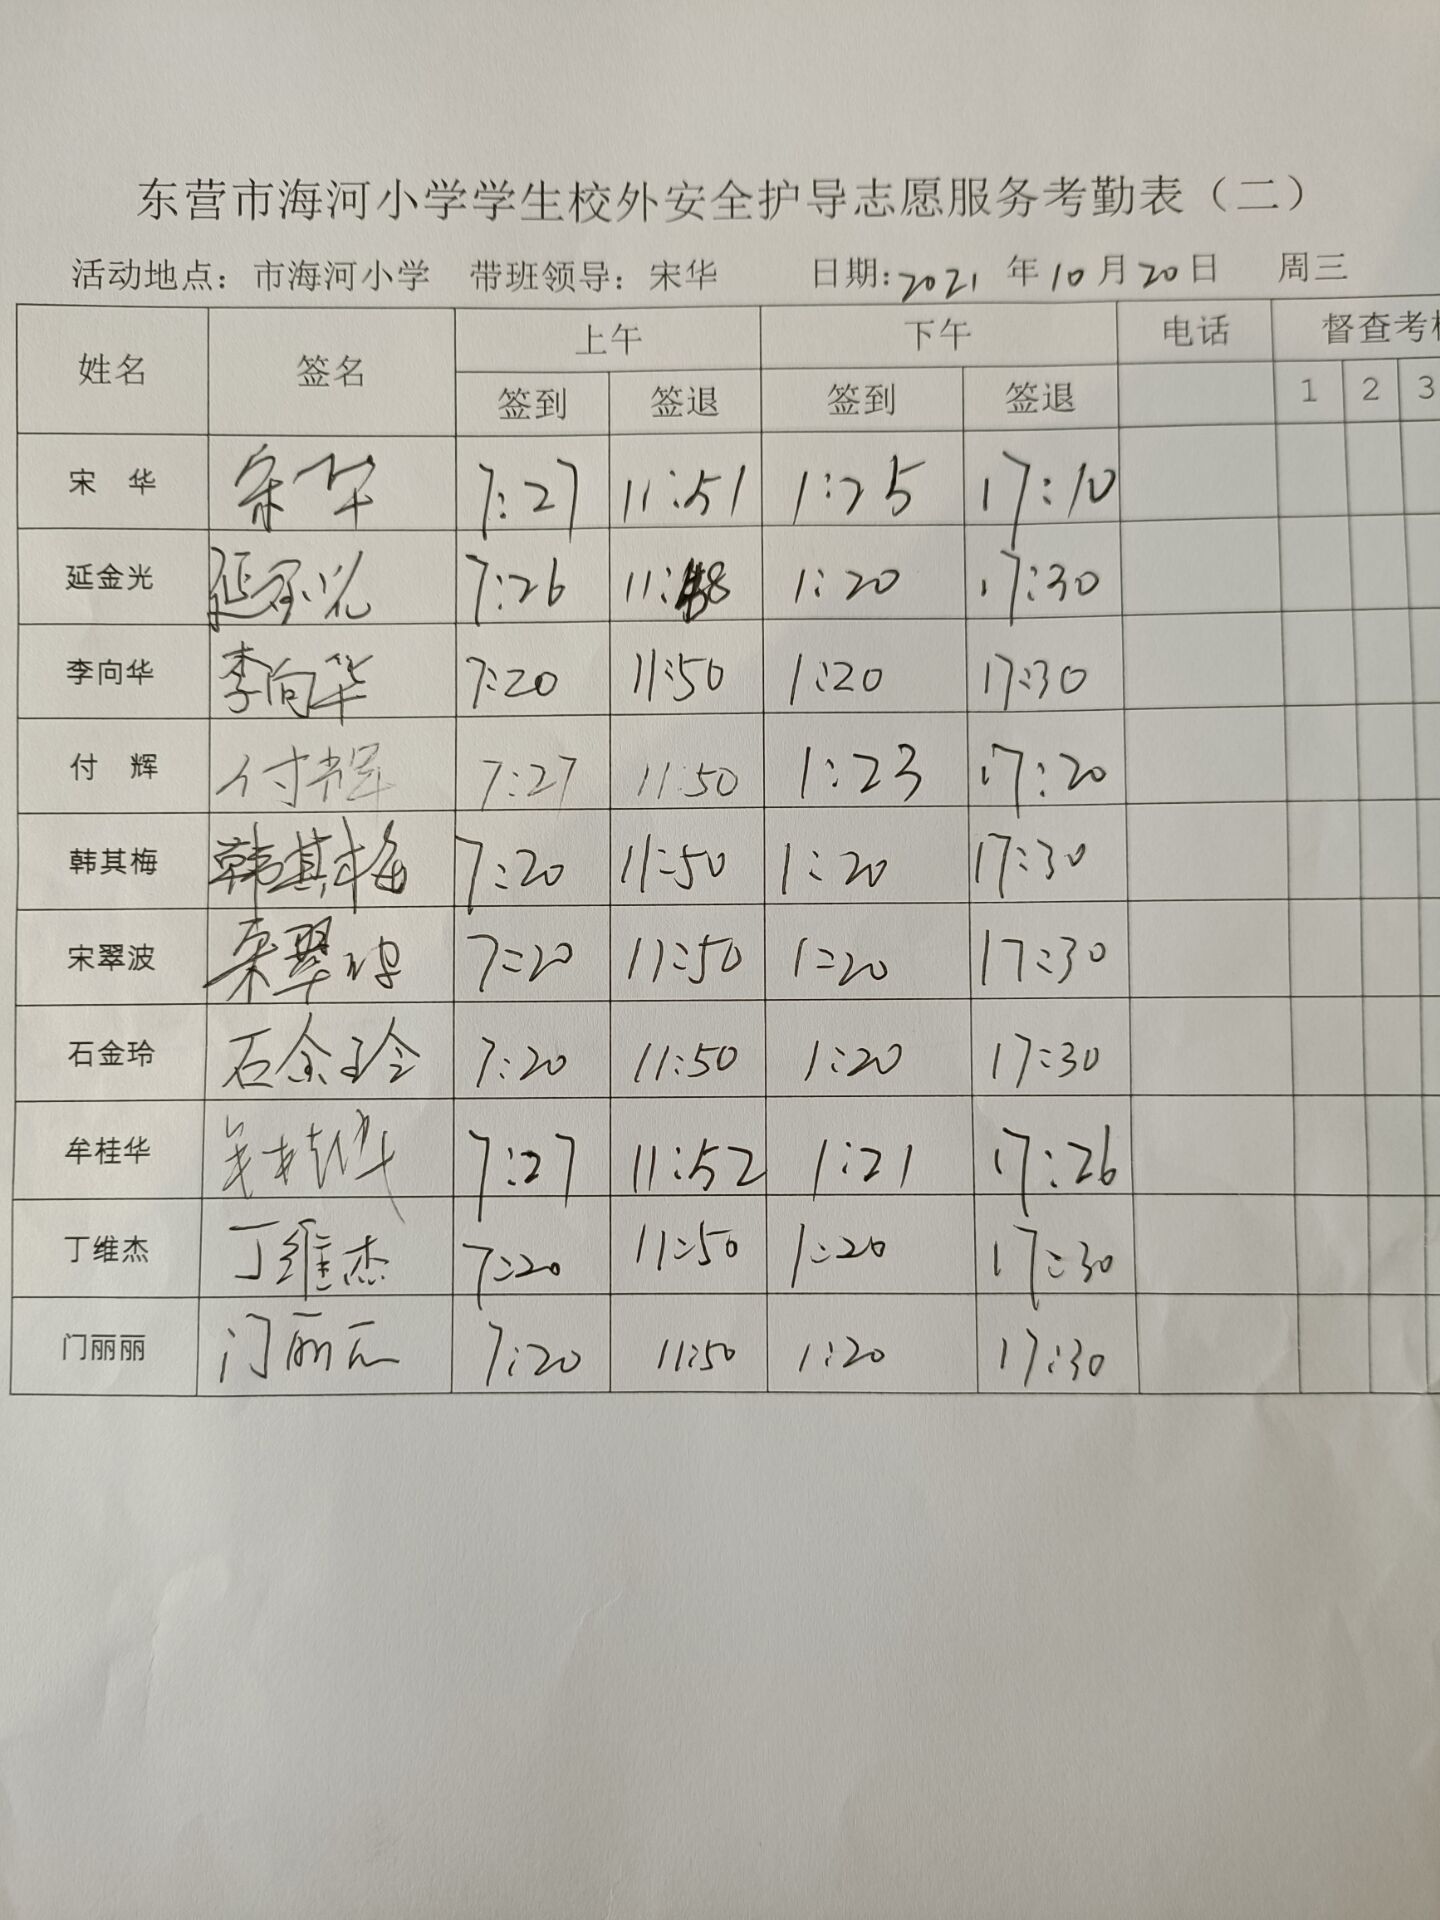 东营市海河小学学生校外安全护导志愿服务考勤表（二）
活动地点：市海河小学 带班领导：宋华 日期:2021 年10月20日 周三
姓名 签名 上午 下午 电话 督查考
签到 签退 签到 签退 1 2 3
宋 华 宋华 7:27 11:51 1:25 17:10
延金光 延金光 7:26 11:48 1:20 17:30
李向华 李向华 7:20 11:50 1:20 17:30
付 辉 付辉 7:27 11:50 1:23 17:20
韩其梅 韩其梅 7:20 11:50 1:20 17:30
宋翠波 宋翠波 7:20 11:50 1:20 17:30
石金玲 石金玲 7:20 11:50 1:20 17:30
牟桂华 牟桂华 7:27 11:52 1:21 17:26
丁维杰 丁维杰 7:20 11:50 1:20 17:30
门丽丽 门丽丽 7:20 11:50 1:20 17:30